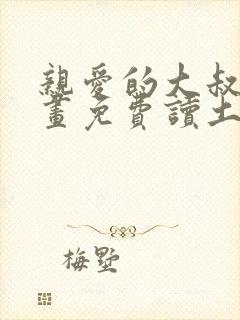 親愛的大叔
畫免費讀土
梅墅